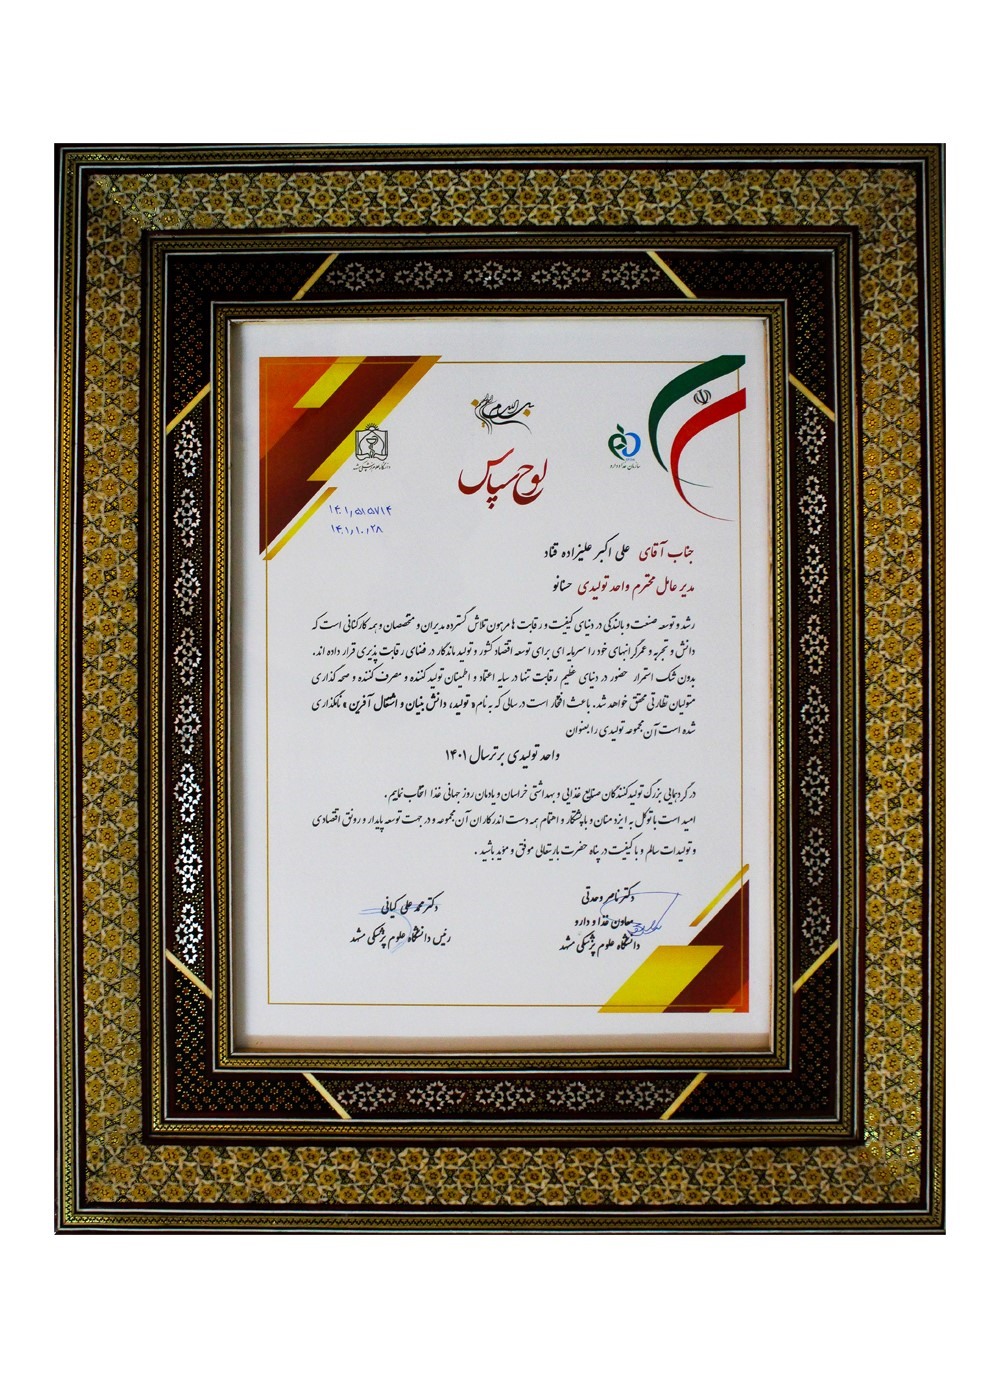 بسم الله الرحمن الرحیم
لوح سپاس
سازمان غذا و دارو
دانشگاه علوم پزشکی مشهد
۱۴۰۱٫۵۱۵۷۱۴
۱۴۰۱٫۱۰٫۲۸
جناب آقای علی اکبر علیزاده قناد
مدیر عامل محترم واحد تولیدی حسنانو
رشد و توسعه صنعت و بالندگی در دنیای کیفیت و رقابت ها مرهون تلاش گسترده مدیران و متخصصان و همه کارکنانی است که
دانش و تجربه و عمر گرانبهای خود را سرمایه ای برای توسعه اقتصاد کشور و تولید ماندگار در فضای رقابت پذیری قرار داده اند.
بدون شک استمرار حضور در دنیای عظیم رقابت تنها در سایه اعتماد و اطمینان تولید کننده و مصرف کننده و صحه گذاری
متولیان نظارتی محقق خواهد شد. باعث افتخار است در سالی که به نام « تولید، دانش بنیان و اشتغال آفرین » نامگذاری
شده است آن مجموعه تولیدی را بعنوان
واحد تولیدی برتر سال ۱۴۰۱
در گردهمایی بزرگ تولیدکنندگان صنایع غذایی و بهداشتی خراسان و یادمان روز جهانی غذا انتخاب نماییم .
امید است با توکل به ایزد منان و با پشتکار و اهتمام همه دست اندرکاران آن مجموعه و در جهت توسعه پایدار و رونق اقتصادی
و تولیدات سالم و با کیفیت در پناه حضرت باریتعالی موفق و مؤید باشید .
دکتر ناصر وحدتی
معاون غذا و دارو
دانشگاه علوم پزشکی مشهد
دکتر محمد علی کیانی
رئیس دانشگاه علوم پزشکی مشهد